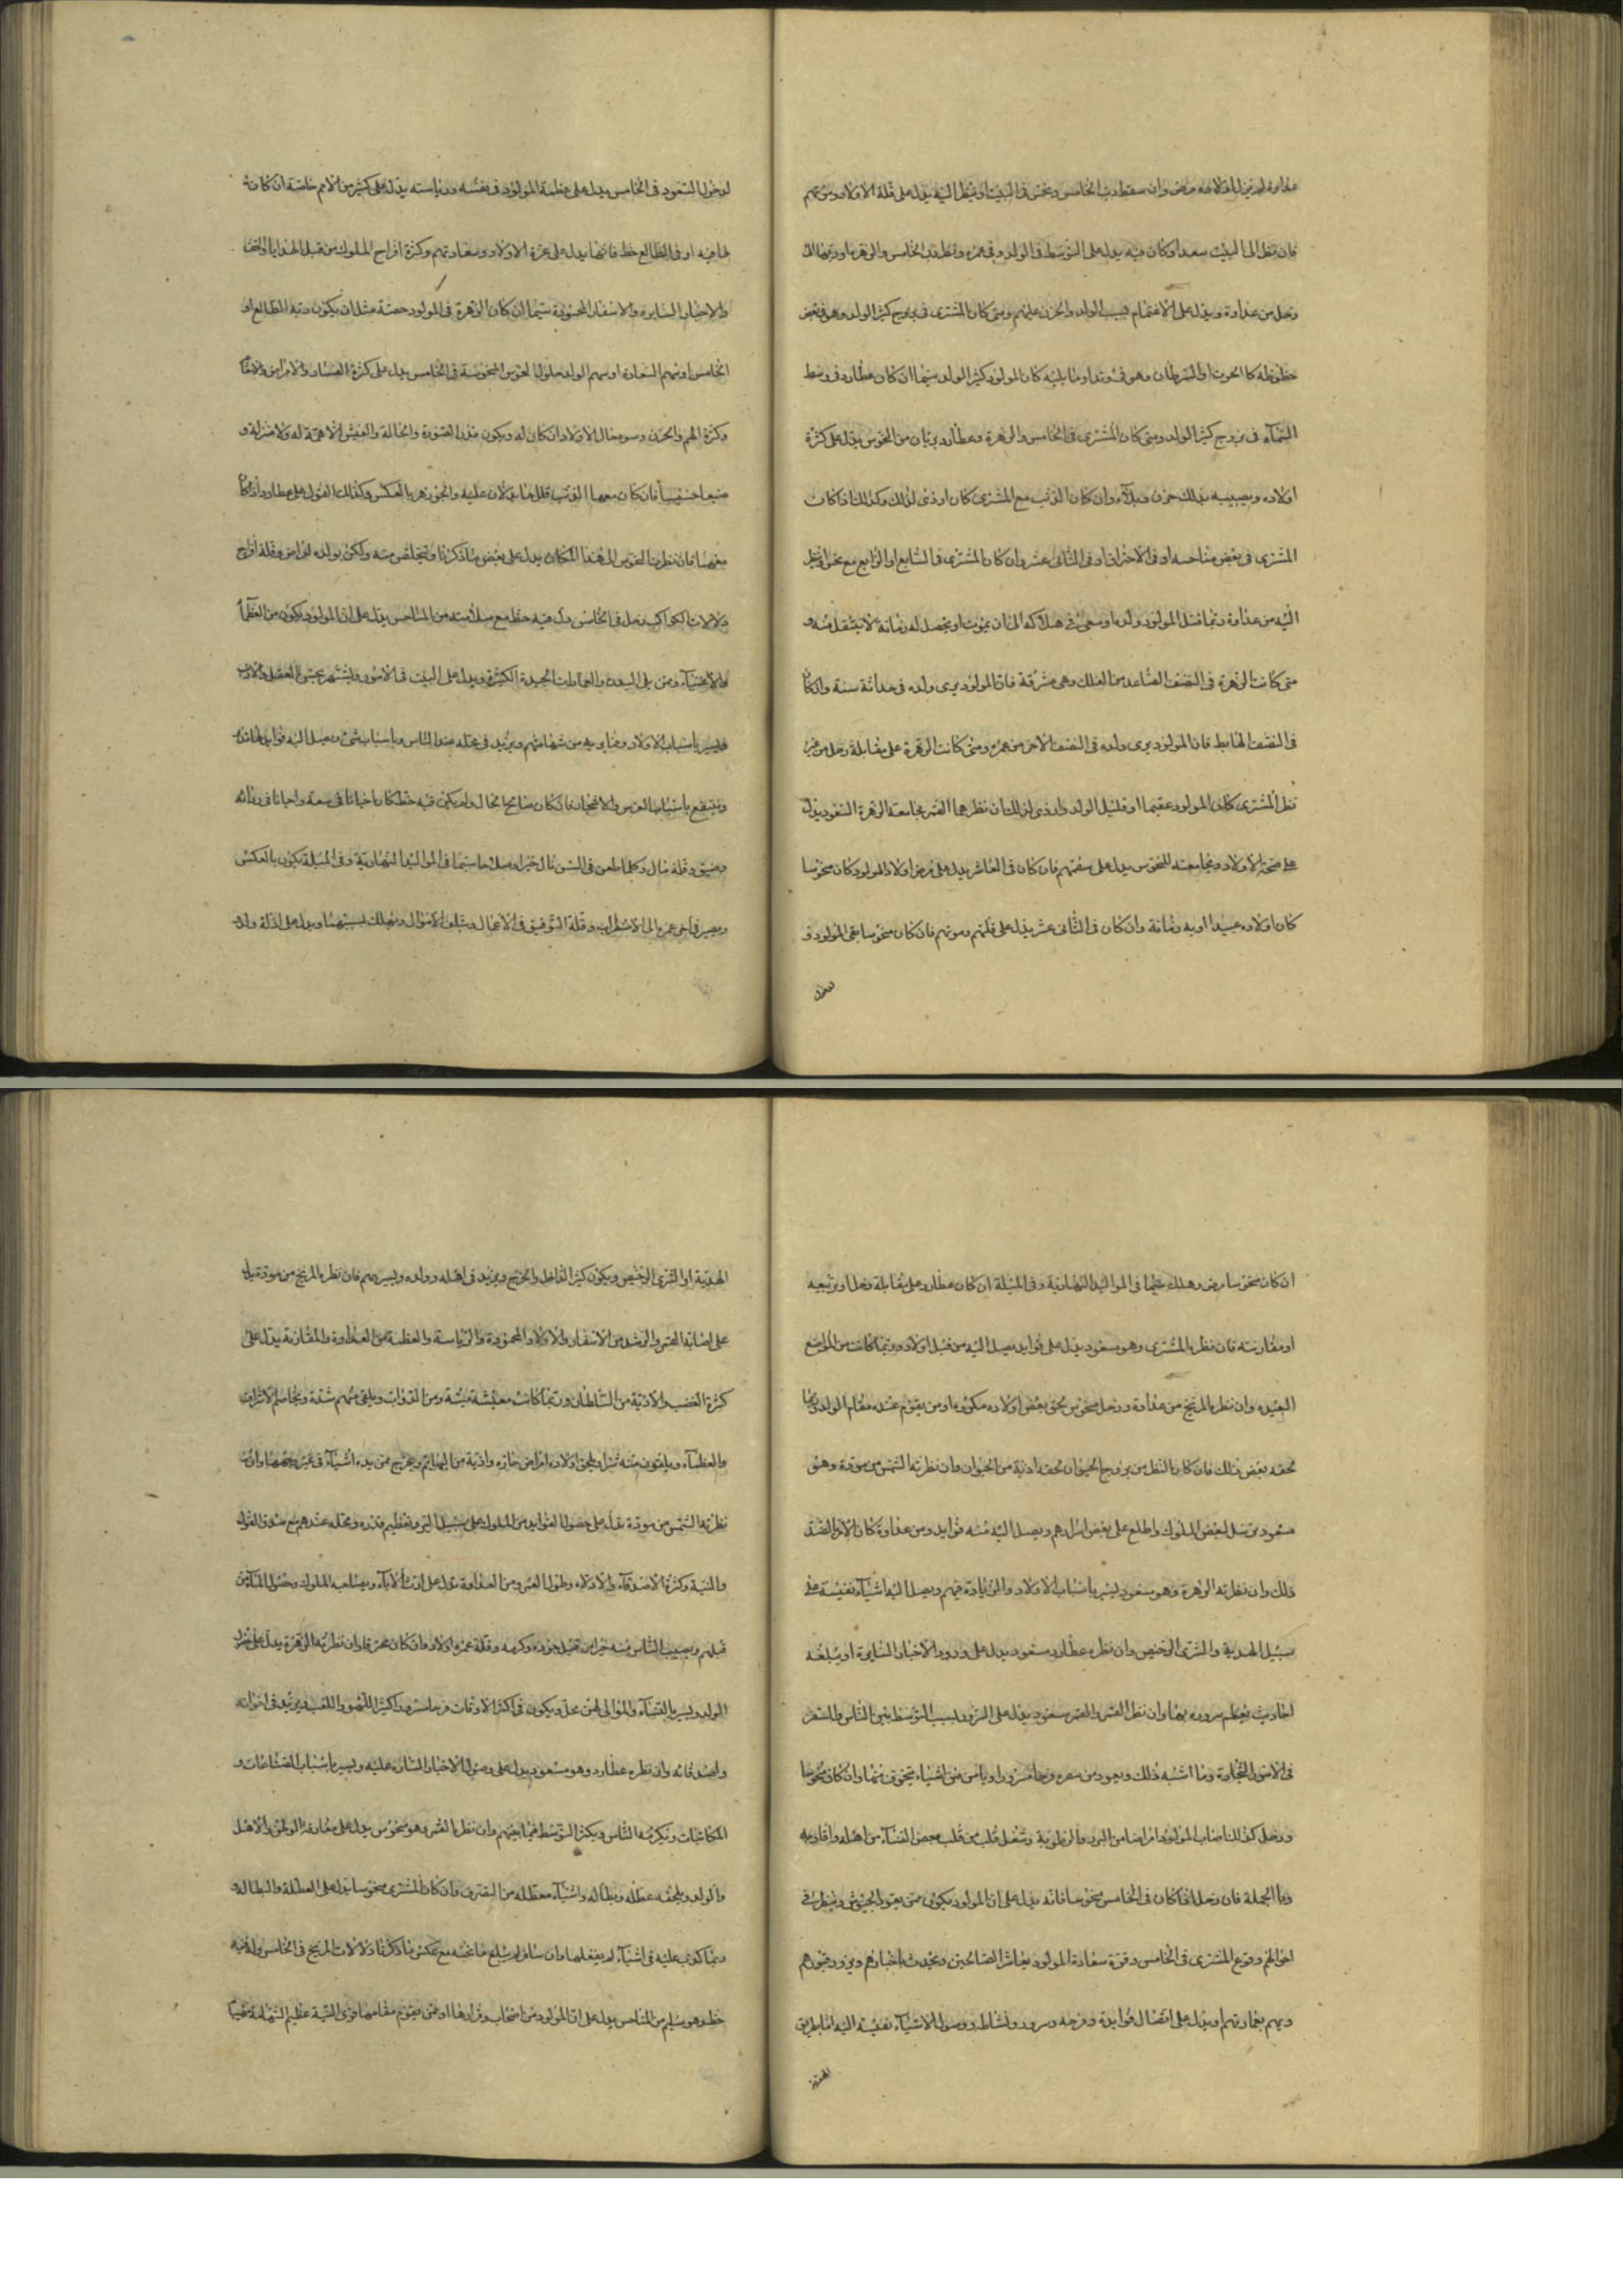 وان سقط رب الخامس ونحس في البيت او ينظر اليه يدل على قلة الاولاد وموتهم
فان نظر الى البيت سعد او كان فيه يدل على التوسط في الولد وفي عمره ونظر رب الخامس والزهرة
زحل من عداوة ويدل على الاغتمام بسبب الولد والحزن عليهم ومتى كان المشترى في بروج كثير الولد وهو في بعض
حظوظه كالحوت او السرطان وهو في وتد او ما يليه كان المولود كثير الولد سيما ان كان عطارد في وسط
السمآء في بروج كثير الولد ومتى كان المشترى في الخامس والزهرة وعطارد بريان من النحوس يدل على كثرة
اولاده ويصيبه بذلك حزن وبلاء وان كان الذنب مع المشترى كان اردى لذلك وكذلك اذا كان
المشترى في بعض مناحسه او في الاحتراق او في الثانى عشر وان كان المشترى في السابع او الرابع مع نحس او ينظر
اليه من عداوة ربما قتل المولود ولده او سعى في هلاكه الى ان يموت او يحصل له زمانة لا ينتقل منه و
متى كانت الزهرة في النصف الصاعد من الفلك وهى مشرقة فان المولود يرى ولده في حداثة سنه وان كان
في النصف الهابط فان المولود يرى ولده في النصف الاخر من عمره ومتى كانت الزهرة على مقابلة زحل من غير
نظر المشترى كان المولود عقيما او قليل الولد واردى لذلك ان نظرهما القمر مجامعة الزهرة السعود يدل
على صحة الاولاد ومجامعته للنحوس يدل على سقمهم فان كان في العاشر يدل على مرض اولاد المولود كان منحوسا
كان اولاده عبيدا او به زمانة وان كان في الثانى عشر يدل على قلتهم وموتهم فان كان منحوسا بقى المولود و
لدخول السعود في الخامس يدل على عظمة المولود في نفسه ورياسته يدل على كثير من الامم خاصة ان كانت
لها فيه او في الطالع حظ فانها يدل على عزة الاولاد وسعادتهم وكثرة افراح الملوك من قبل الهدايا والتحف
والاخبار السارة والاسفار المحمودة سيما ان كان الزهرة في المولود حصة مثل ان يكون ربة الطالع او
الخامس او سهم السعادة او سهم الولد حلول النحوس المنحوسة في الخامس يدل على كثرة الفساد والامراض
وكثرة الهم والحزن وسوء حال الاولاد وان كان له ويكون مذل الصورة والحالة والعيش لا همة له ولا منزلة و
فان كان معها الذنب قلل ما يدلان عليه والجوزهر بالعكس وكذلك القول على عطارد اذا كان
فان نظرت النحوس الى هذا المكان يدل على بعض ما ذكرنا ويتخلص منه ولكن يولده امراض وقلة افراح
دلالات الكواكب زحل في الخامس وله فيه حظ مع سلامته من المناحس يدل على ان المولود يكون من العظمآء
والاغنيآء ومن يلى المدن والعمارات الجيدة الكثيرة ويدل على التثبت في الامور ويشتهر بحسن العقل والادب
فليسر باسباب الاولاد ويزيد في محله عند الناس وباسباب شتى ويصل اليه فوايد
وينتفع باسباب الغرس فان كان صالح الحال ولم يكن فيه حظ كان احيانا في سعة واحيانا في رداءة
وضيق وقلة مال وكلما طعن في السن نال خيرا وصلاحا سيما في المواليد النهارية وفى الليلة يكون بالعكس
ويصير في اخر عمره الى الاضطراب وقلة التوفيق في الاعمال ويتلف الاموال ويهلك بسببهما ويدل على اذلة ولد
ان كان منحوسا مرض وهلك سيما في المواليد النهارية وفى الليلة ان كان عطارد على مقابلة زحل او تربيعه
او مقارنته فان نظره المشترى وهو مسعود يدل على فوايد يصل اليه من قبل اولاده وربما كانت من المواضع
البعيدة وان نظره المريخ من عداوة وزحل منحوس لحق بعض اولاده مكروه او من يقوم عنده مقام الولد وربما
لحقه بعض ذلك فان كان النظر من بروج الحيوان لحقه اذية من الحيوان وان نظرته الشمس من مودة وهو
مسعود توسل لبعض الملوك واطلع على بعض اسرارهم ويصل اليه منه فوايد ومن عداوة كان الامر بالضد
ذلك وان نظرته الزهرة وهو مسعود ليسر باسباب الاولاد والزيادة فيهم ويصل اليه اشيآء نفيسة على
سبيل الهدية والشرى الرخيص وان نظره عطارد مسعود يدل على ورود الاخبار السارة او يبلغه
احاديث يعظم سروره بها وان نظر القمر والقمر مسعود يدل على التردد بسبب التوسط بين الناس والسفر
في الامور التجارة وما اشبه ذلك ويعود من سفره فرحا مسرورا وان كان منحوسا
وزحل كذلك اصاب المولود امراضا من البرد والرطوبة وشغل قلب من قلب بعض النسآء من اهله واقاربه
وبالجملة فان زحل اذا كان في الخامس منحوسا فانه يدل على ان المولود يكون ممن يقود الجيوش وينظر في
احوالهم وقوع المشترى في الخامس وقوة سعادة المولود يعاشر الصالحين ويحدث باخبارهم ويزور قبورهم
ويهم بعمارتهم ويدل على اتصال فوايده وفرحه وسروره ونشاطه ووصول الاشيآء نفيسة اليه اما بطريق
الهدية
الهدية او الشرى الرخيص ويكون كثير الداخل والخرج ويزيد في اهله وولده ويسر بهم فان نظره المريخ من مودة يدل
على اصابة الخير والرشد من الاسفار والاولاد المحمودة والرياسة والعظمة من العداوة والمقارنة يدل على
كثرة الغضب والاذية من السلطان وربما كانت معيشة منه ومن الدواب ويلقى منهم شدة ويخاصم الاشراف
والعظمآء ويلقون منه شرا ويلحق اولاده امراض حارة واذية من البهايم ويخرج من يده اشيآء في غير حقها وان
نظرته الشمس من مودة يدل على حصول الفوايد من الملوك على سبيل البر وتعظيم قدره ومحله عندهم مع صدق القول
والنية وكثرة الاصدقآء والاولاد وطول العمر ومن العداوة يدل على الابآء ويصاحب الملوك
قبلهم ويصيب الناس منه خيرا من قبل جوده وكرمه وقلة عمره اولاده وان كان محترقا وان نظرته الزهرة يدل على
الولد ويسر بالنسآء والموالى لهن محل ويكون في اكثر الاوقات فرحا مسرورا كثير اللهو واللعب ويزيد في اخوانه
واصدقائه وان نظره عطارد وهو مسعود يدل على وصول الاخبار السارة عليه ويسر باسباب الصناعات و
المكاتبات ويكرمه الناس ويكثر التوسط فيما بينهم وان نظر القمر وهو منحوس يدل على مفارقة الوطن والاهل
والولد ويلحقه عطلة وبطالة واشيآء معطلة من التصرف وان كان المشترى منحوسا يدل على العطلة والبطالة
وربما كوتب عليه في اشيآء لم يفعلها وان سافر لم يبلغ ما تمنه مع عكس ما ذكرنا دلالات المريخ في الخامس وله فيه
حظ وهو سليم من المناحس يدل على ان المولود من اصحاب او ممن يقوم مقامها قوى النية عظيم الشهامة